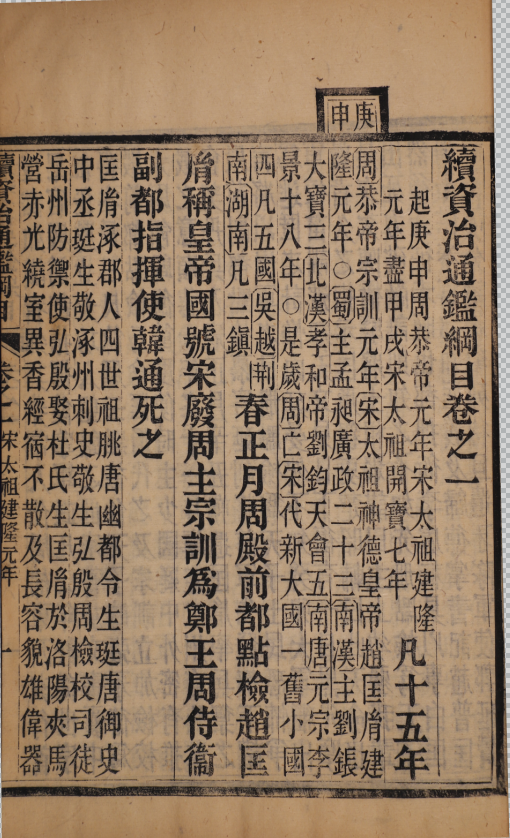 庚申
續資治通鑑綱目卷之一
起庚申周恭帝元年宋太祖建隆
元年盡甲戌宋太祖開寶七年
凡十五年
周恭帝宗訓元年宋太祖神德皇帝趙匡胤建
隆元年○蜀主孟昶廣政二十三南漢主劉鋹
大寶三北漢孝和帝劉鈞天會五南唐元宗李
景十八年○是歲周亡宋代新大國一舊小國
四凡五國吳越荊
南湖南凡三鎮
春正月周殿前都點檢趙匡
胤稱皇帝國號宋廢周主宗訓爲鄭王周侍衞
副都指揮使韓通死之
匡胤涿郡人四世祖朓唐幽都令生珽唐御史
中丞珽生敬涿州刺史敬生弘殷周檢校司徒
岳州防禦使弘殷娶杜氏生匡胤於洛陽夾馬
營赤光繞室異香經宿不散及長容貌雄偉器
續資治通鑑綱目 卷之一 宋太祖建隆元年 一